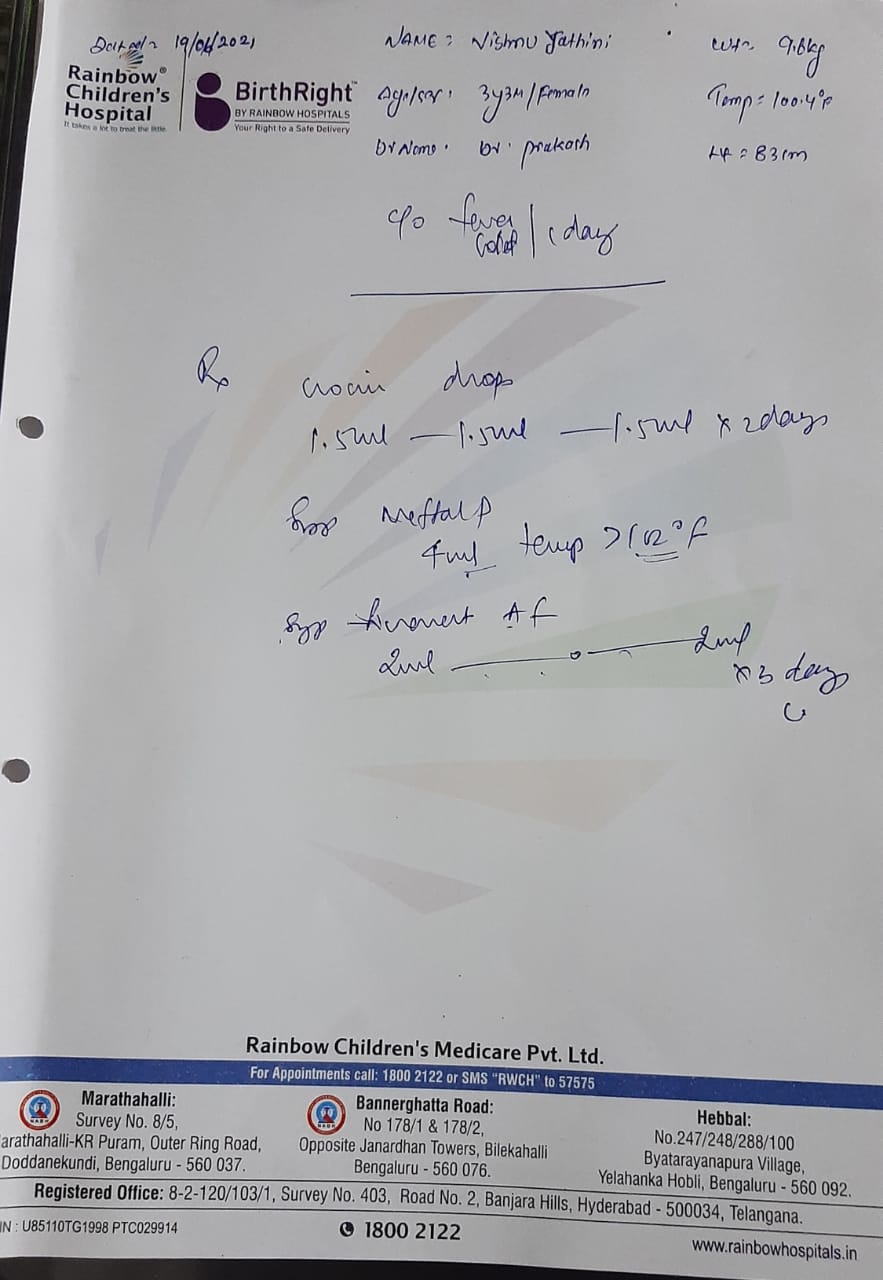 Dated 19/04/2021
NAME : Vishnu Yathini
Wt 9.6kg
Rainbow®
Children's
Hospital
It takes a lot to treat the little.
BirthRight™
BY RAINBOW HOSPITALS
Your Right to a Safe Delivery
Age/sex : 3y3M/Female
Temp = 100.4°F
Dr Name . Dr. Prakash
Ht = 83cm
c/o fever
cold / 1 day
Rx crocin drops
1.5ml — 1.5ml — 1.5ml x 2days
Syp Meftal P
4ml temp >102°F
Syp AF
2ml — o — 2ml
x 3 days
Rainbow Children's Medicare Pvt. Ltd.
For Appointments call: 1800 2122 or SMS "RWCH" to 57575
Marathahalli:
Survey No. 8/5,
arathahalli-KR Puram, Outer Ring Road,
Doddanekundi, Bengaluru - 560 037.
Bannerghatta Road:
No 178/1 & 178/2,
Opposite Janardhan Towers, Bilekahalli
Bengaluru - 560 076.
Hebbal:
No.247/248/288/100
Byatarayanapura Village,
Yelahanka Hobli, Bengaluru - 560 092.
Registered Office: 8-2-120/103/1, Survey No. 403, Road No. 2, Banjara Hills, Hyderabad - 500034, Telangana.
IN : U85110TG1998 PTC029914
1800 2122
www.rainbowhospitals.in